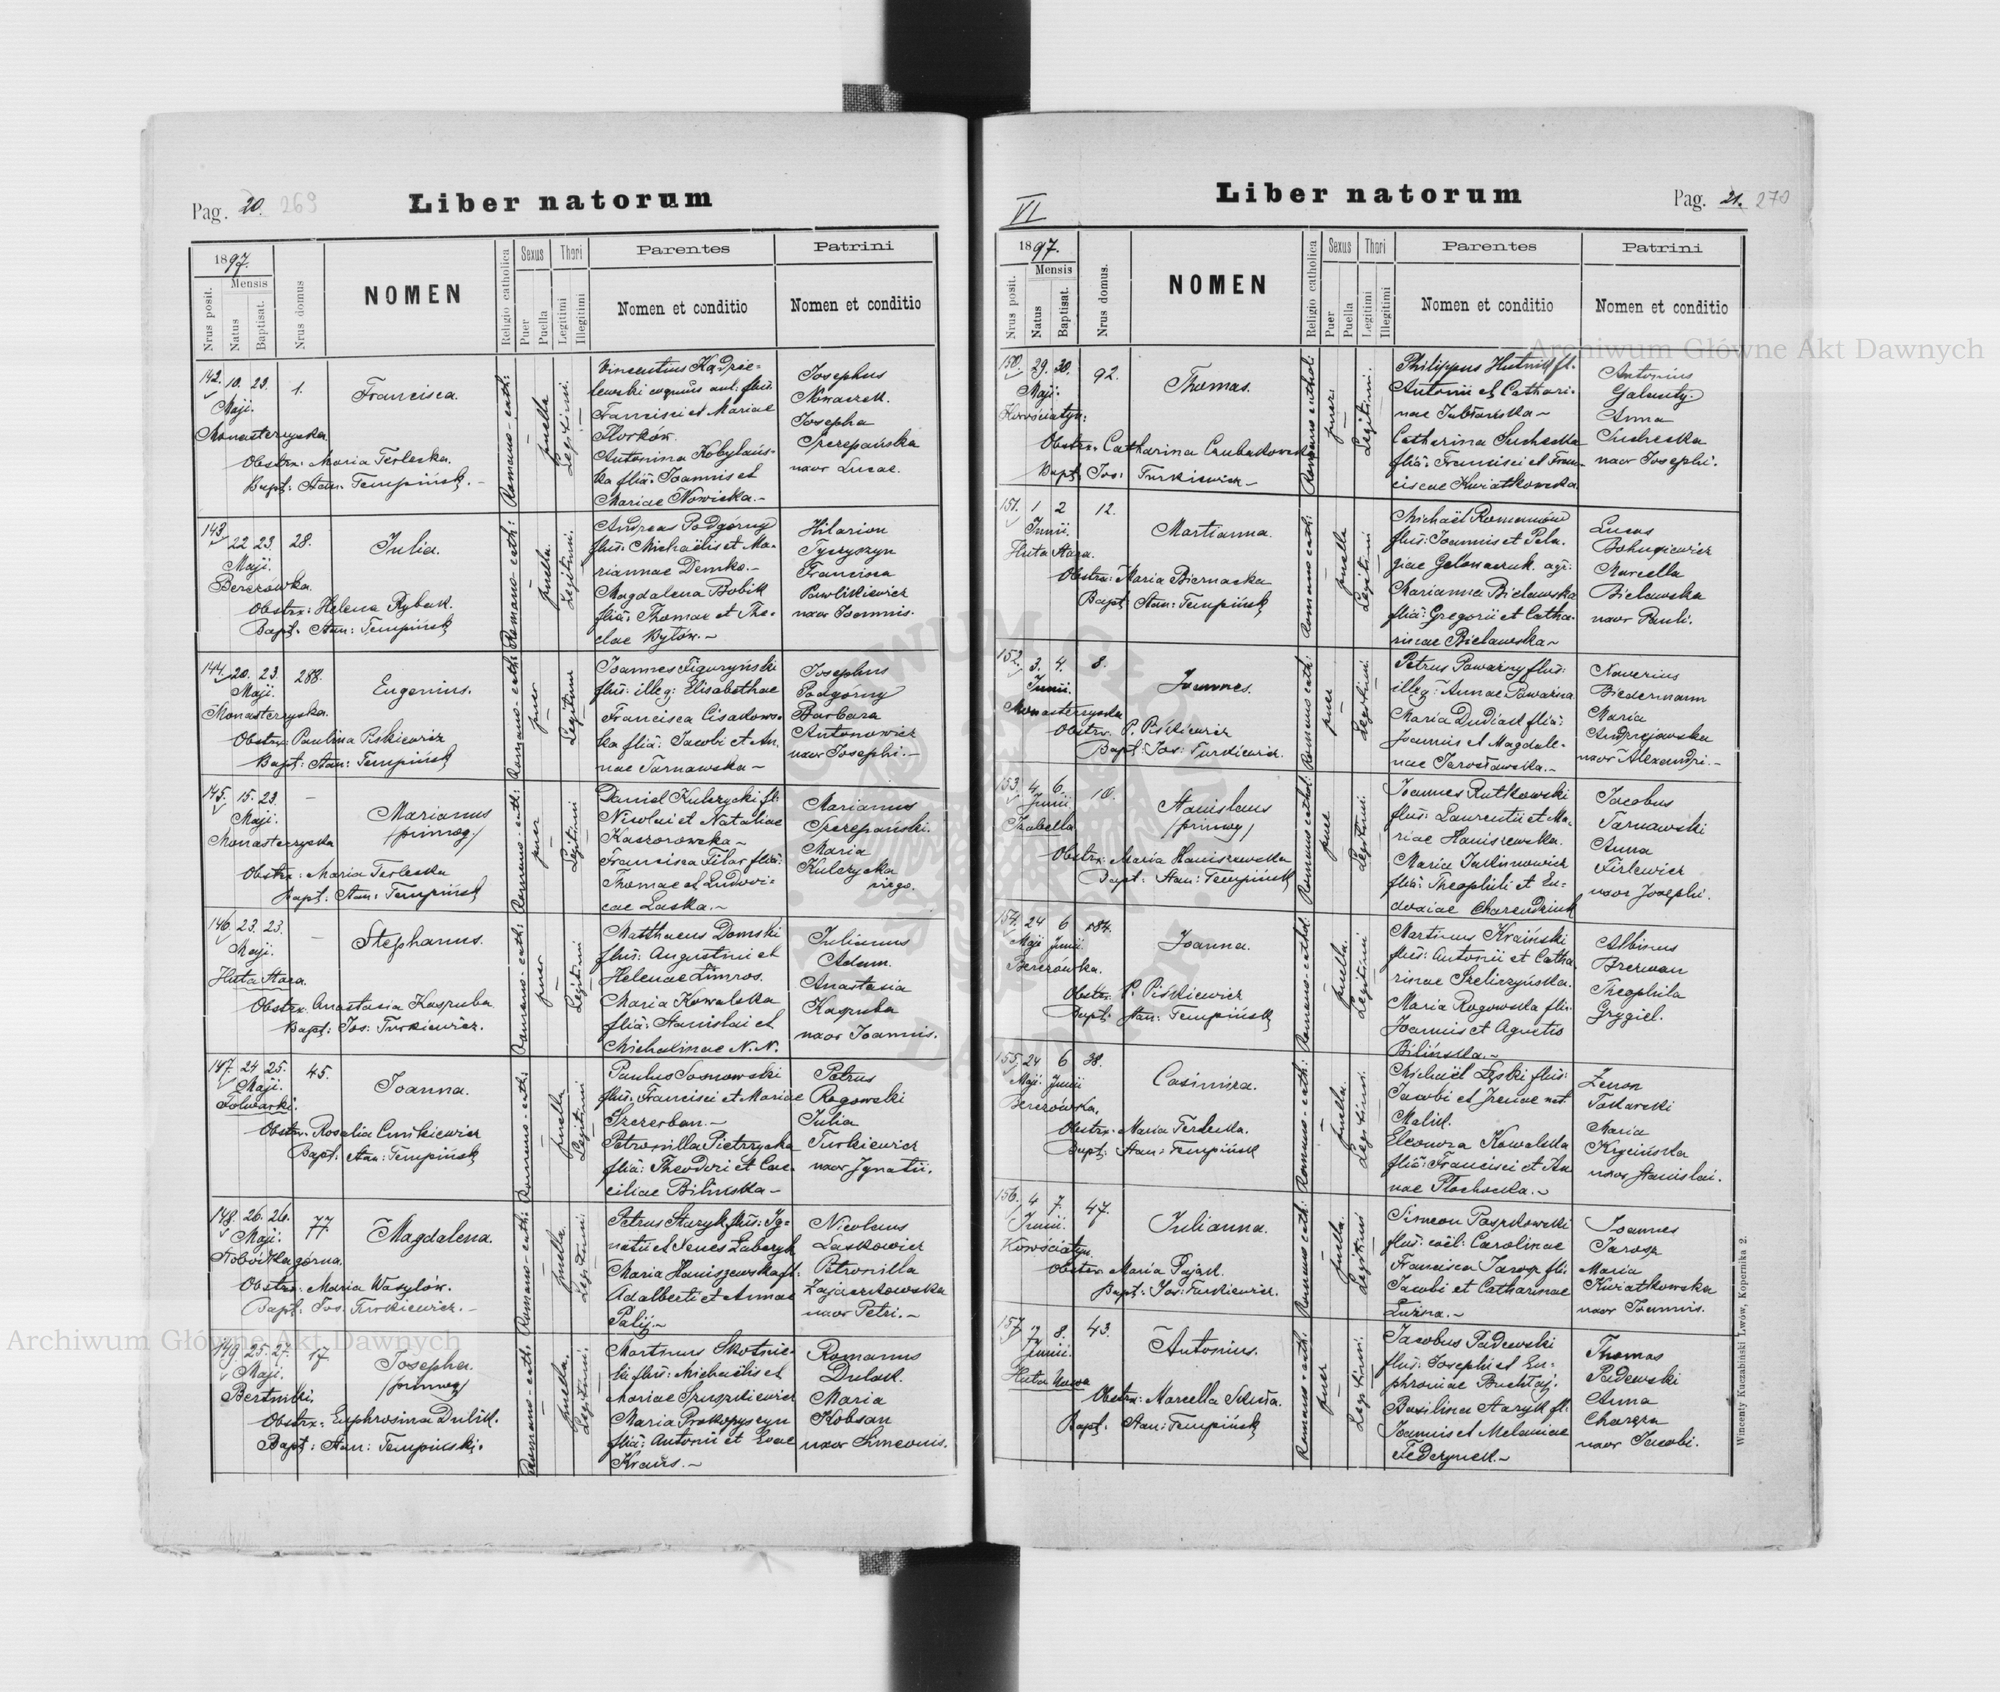 Pag. 20. 269
Liber natorum
1897.
Mensis
Nrus posit.
Natus
Baptisat.
Nrus domus
NOMEN
Religio catholica
Sexus
Puer
Puella
Thori
Legitimi
Illegitimi
Parentes
Nomen et conditio
Patrini
Nomen et conditio
142. 10. 23. 1.
Maji.
Monasterzyska
Francisca.
Obstrx: Maria Terlecka.
Bapt: Stan: Tempińsk.
Romano-cath:
puella
Legitimi.
Vincentius Kądzie-
lewski
Francisci et Mariae
Florków.
Antonina Kobylańs-
ka filia: Joannis et
Mariae Nowicka.-
Josephus
Nowaczek.
Josepha
Szczepańska
uxor Lucae.
143. 22 23. 28.
Maji.
Berezówka.
Julia.
Obstrx: Helena Rybak.
Bapt. Stan: Tempińsk
Romano-cath:
puella.
Legitimi.
Andreas Podgórny
flius: Michaëlis et Ma-
riannae Demko.-
Magdalena Bobik
filia: Thomae et The-
clae Bytów.-
Hilarion
Tyczyszyn
Francisca
Pawlikiewicz
uxor Joannis.
144. 20. 23. 288.
Maji.
Monasterzyska.
Eugenius.
Obstrx: Paulina Piskiewicz
Bapt: Stan: Tempińsk
Romano-cath:
puer
Legitimi
Joannes Figurzyński
flius: illeg: Elisabethae
Francisca Lisakows-
ka filia: Jacobi et An-
nae Tarnawska-
Josephus
Podgórny
Barbara
Antonowicz
uxor Josephi.-
145. 15. 23. -
Maji.
Monasterzyska
Marianus
/primog/
Obstrx: Maria Terlecka
Bapt: Stan: Tempińsk
Romano-cath:
puer
Legitimi
Daniel Kulczycki fl:
Nicolai et Nataliae
Kaczorowska-
Francisca Filar filia:
Thomae et Ludovi-
cae Laska.-
Marianus
Szczepański.
Maria
Kulczycka
virgo.
146. 23. 23. -
Maji.
Huta Stara.
Stephanus.
Obstrx. Anastasia Kaspruba
Bapt: Jos: Turkiewicz.
Romano-cath:
puer
Legitimi
Matthaeus Domski
flius: Augustini et
Helenae Zimros.
Maria Kowalska
filia: Stanislai et
Michalinae N.N.
Julianus
Adam.
Anastasia
Kaspruba
uxor Joannis.
147. 24 25. 45.
Maji.
Folwarki.
Joanna.
Obstrx. Rosalia Cunkiewicz
Bapt. Stan: Tempińsk
Romano-cath:
puella
Legitimi
Paulus Sosnowski
flius: Francisci et Mariae
Szczerban.-
Petronilla Pietrzycka
filia: Theodori et Cae-
ciliae Bilińska-
Petrus
Rogowski
Julia
Turkiewicz
uxor Ignatii.
148. 26. 26. 77
Maji.
Słobódka górna.
Magdalena.
Obstrx: Maria Wasylów.
Bapt. Jos: Turkiewicz.-
Romano-cath:
puella.
Legitimi.
Petrus Staryk flius: Ig-
natii et
Maria Haniszewska fl:
Adalberti et Annae
Palij.-
Nicolaus
Laskowicz
Petronilla
Zajaczkowska
uxor Petri.-
149. 25. 27. 17
Maji.
Bertniki.
Josepha.
/primog/
Obstrx: Euphrosina Dulik.
Bapt: Stan: Tempiński.
Romano-cath.
puella.
Legitimi.
Martinus Skotnic-
ki flius: Michaëlis et
Mariae
Maria Prokopyszyn
filia: Antonii et Evae
Kraus.-
Romanus
Dulak.
Maria
Kobsan
uxor Simeonis.
VI
Liber natorum
Pag. 21. 270
1897.
Mensis
Nrus posit.
Natus
Baptisat.
Nrus domus.
NOMEN
Religio catholica
Sexus
Puer
Puella
Thori
Legitimi
Illegitimi
Parentes
Nomen et conditio
Patrini
Nomen et conditio
150. 29. 30. 92.
Maji.
Kowościatyn:
Thomas.
Obstrx. Catharina Czubakowska
Bapt. Jos: Turkiewicz-
Romano cathol:
puer
Legitimi.
Philippus Hutnik fl.
Antonii et Cathari-
nae Jabłońska-
Catharina Suchecka
filia: Francisci et Fran-
ciscae Kwiatkowska.
Antonius
Galanty.
Anna
Suchecka
uxor Josephi.
151. 1 2 12.
Junii.
Huta Stara.
Martianna.
Obstrx: Maria Biernacka
Bapt: Stan: Tempińsk
Romano cath:
puella
Legitimi
Michaël Romanów
flius: Joannis et Pela-
giae agr:
Marianna Bielawska
filia: Gregorii et Catha-
rinae Bielawska-
Lucas
Bohusiewicz
Marcella
Bielawska
uxor Pauli.
152. 3. 4. 8.
Junii.
Monasterzyska
Joannes.
Obstrx. P. Piskiewicz
Bapt: Jos: Turkiewicz.
Romano cath:
puer
Legitimi.
Petrus Pawarny flius:
illeg: Annae Pawarna
Maria Dudiak filia:
Joannis et Magdale-
nae Jarosławska.-
Xaverius
Biedermann
Maria
Andrzejowska
uxor Alexandri.-
153. 4. 6. 10.
Junii
Izabella
Stanislaus
/primog/
Obstrx: Maria Haniszewska
Bapt: Stan: Tempińsk
Romano cathol:
puer
Legitimi.
Joannes Rutkowski
flius: Laurentii et Ma-
riae Haniszewska.
Maria Juchnowicz
filia: Theophili et Eu-
doxiae Charendziuk
Jacobus
Tarnawski
Anna
Firlewicz
uxor Josephi.
154. 24 6 284.
Maji Junii
Berezówka.
Joanna.
Obstrx. P. Piskiewicz
Bapt. Stan: Tempińsk
Romano-cathol:
puella.
Legitimi
Martinus Kraiński
flius: Antonii et Catha-
rinae Szeliczyńska.
Maria Rogowska fil:
Joannis et Agnetis
Bilińska.-
Albinus
Brezwan
Theophila
Grygiel.
155. 24 6 38.
Maji Junii
Berezówka.
Casimira.
Obstrx: Maria Terlecka.
Bapt: Stan: Tempińsk
Romano-cath:
puella.
Legitimi.
Michaël Łęski flius:
Jacobi et Irenae nat.
Malik.
Eleonora Kowalska
filia: Francisci et An-
nae Płachocka.-
Zenon
Tokarski
Maria
Krycińska
uxor Stanislai.
156. 4 7. 47.
Junii.
Kowościatyn.
Julianna.
Obstrx. Maria Pająk.
Bapt: Jos: Turkiewicz.
Romano cath:
puella.
Legitimi
Simeon Paszkowski
flius: coel: Carolinae
Francisca Jarosz fil:
Jacobi et Catharinae
Luzna.-
Joannes
Jarosz
Maria
Kwiatkowska
uxor Joannis.
157. 7 8. 43.
Junii.
Huta Nowa
Antonius.
Obstrx: Marcella Skuła.
Bapt. Stan: Tempińsk
Romano-cath.
puer
Legitimi.
Jacobus Padewski
flius: Josephi et Eu-
phroniae Buchtaj.
Basilina Staryk fl:
Joannis et Melaniae
Federynek.-
Thomas
Padewski
Anna
Charzra
uxor Jacobi.
Wincenty Kuczabiński Lwów, Kopernika 2.
Archiwum Główne Akt Dawnych
Archiwum Główne Akt Dawnych